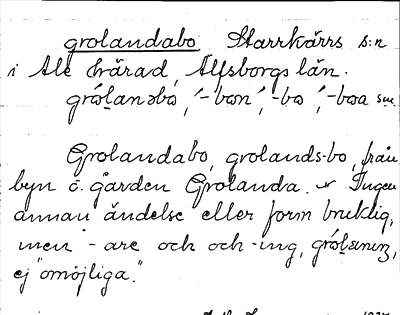 grolandabo Starrkärrs s:n
i Ale härad, Älfsborgs län.
gróḷanəbo, ´-bon´, -bo, ´-boa
Grolandabo, grolands-bo, från
byn o. gården Grolanda. Ingen
annan ändelse eller form bruklig,
men -are och och -ing, gróḷanıŋ,
ej "omöjliga."